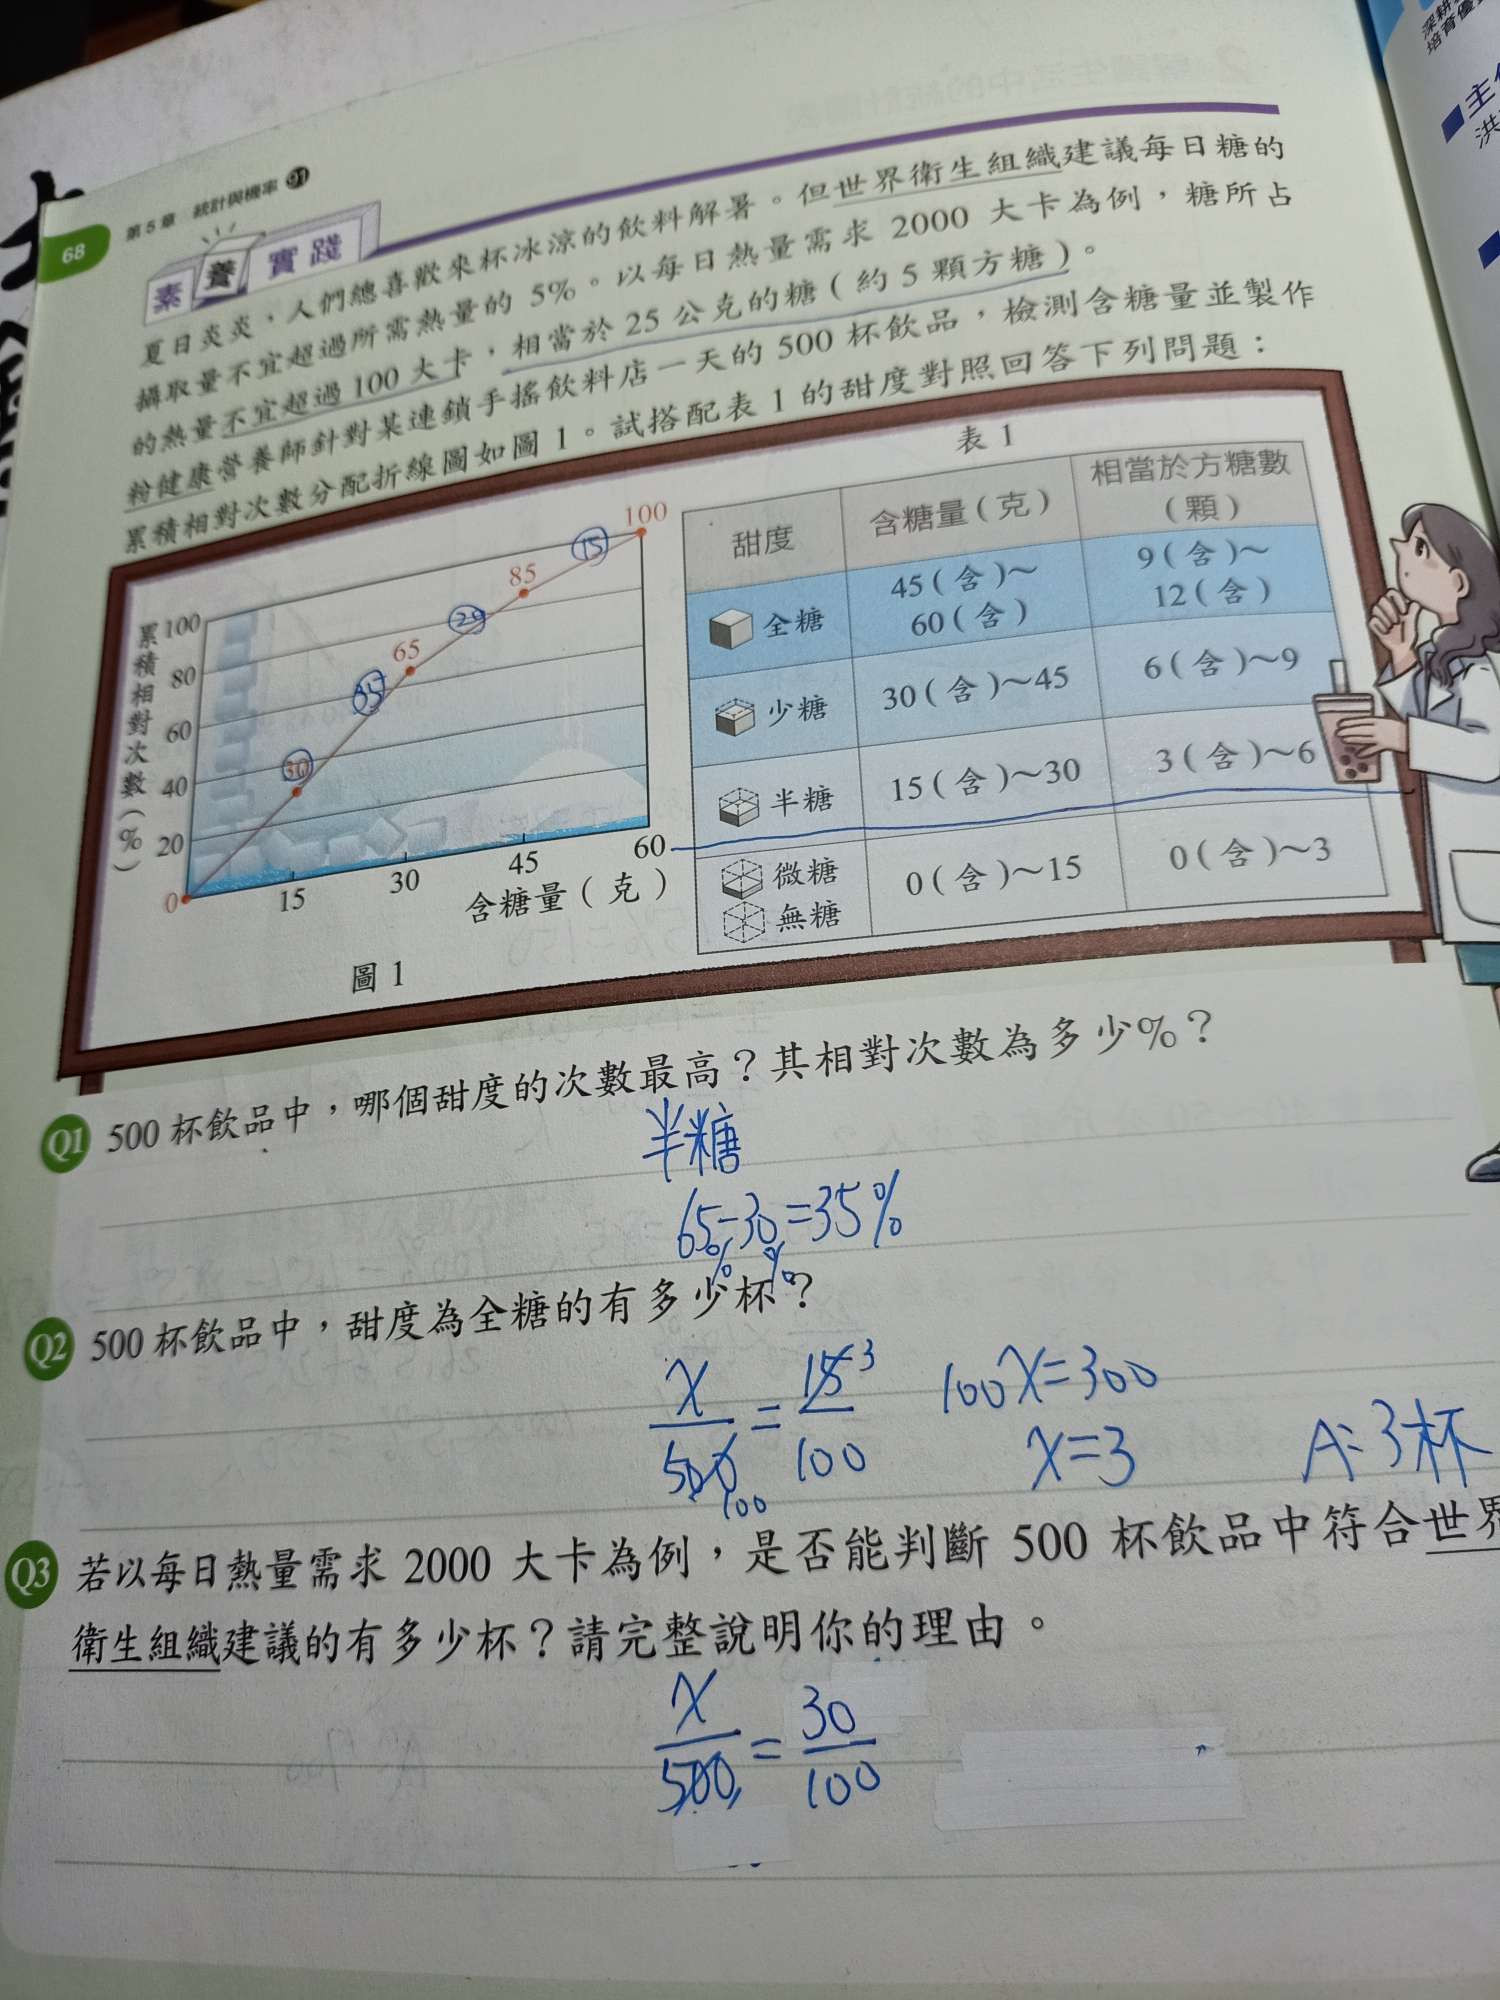 深耕
培育優
主
洪
68
第5章 統計與機率 91
素養實踐
夏日炎炎，人們總喜歡來杯冰涼的飲料解暑。但世界衛生組織建議每日糖的
攝取量不宜超過所需熱量的 5%。以每日熱量需求 2000 大卡為例，糖所占
的熱量不宜超過100大卡，相當於 25 公克的糖（約 5 顆方糖）。
粉健康營養師針對某連鎖手搖飲料店一天的 500 杯飲品，檢測含糖量並製作
累積相對次數分配折線圖如圖 1。試搭配表 1 的甜度對照回答下列問題：
累積相對次數（%）
100
80
60
40
20
0
15
30
45
60
含糖量（克）
30
65
85
100
35
20
15
圖 1
表 1
甜度 含糖量（克） 相當於方糖數（顆）
全糖 45（含）～60（含） 9（含）～12（含）
少糖 30（含）～45 6（含）～9
半糖 15（含）～30 3（含）～6
微糖 無糖 0（含）～15 0（含）～3
Q1 500 杯飲品中，哪個甜度的次數最高？其相對次數為多少%？
半糖
65%-30%=35%
Q2 500 杯飲品中，甜度為全糖的有多少杯？
x/500 = 15/100 3 100x=300
100 x=3 A:3杯
Q3 若以每日熱量需求 2000 大卡為例，是否能判斷 500 杯飲品中符合世界
衛生組織建議的有多少杯？請完整說明你的理由。
x/500 = 30/100